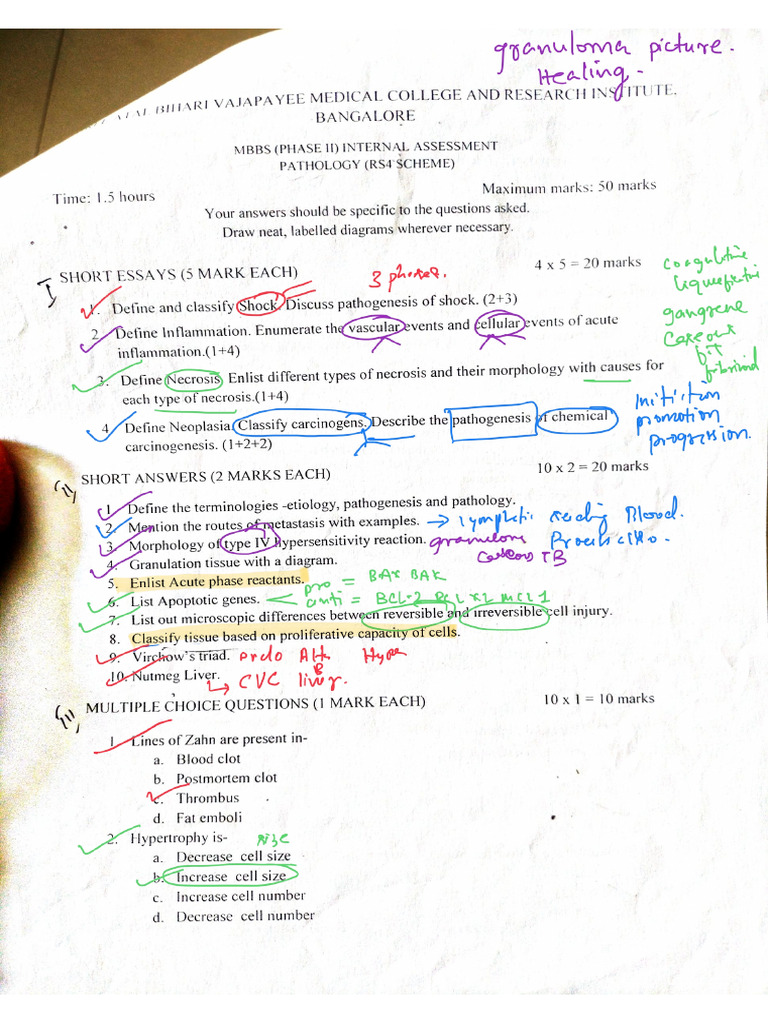 granuloma picture.
Healing.
ATAL BIHARI VAJAPAYEE MEDICAL COLLEGE AND RESEARCH INSTITUTE,
BANGALORE
MBBS (PHASE II) INTERNAL ASSESSMENT
PATHOLOGY (RS4 SCHEME)
Time: 1.5 hours Maximum marks: 50 marks
Your answers should be specific to the questions asked.
Draw neat, labelled diagrams wherever necessary.
I SHORT ESSAYS (5 MARK EACH) 3 phases. 4 x 5 = 20 marks
coagulative
liquefactive
gangrene
caseous
fibrinoid
1. Define and classify Shock. Discuss pathogenesis of shock. (2+3)
2. Define Inflammation. Enumerate the vascular events and cellular events of acute
inflammation.(1+4)
3. Define Necrosis. Enlist different types of necrosis and their morphology with causes for
each type of necrosis.(1+4)
4. Define Neoplasia. Classify carcinogens. Describe the pathogenesis of chemical
carcinogenesis. (1+2+2)
Initiation
promotion
progression.
II SHORT ANSWERS (2 MARKS EACH) 10 x 2 = 20 marks
1. Define the terminologies -etiology, pathogenesis and pathology.
2. Mention the routes of metastasis with examples. → lymphatic Seeding Blood.
3. Morphology of type IV hypersensitivity reaction. granuloma
caseous TB
4. Granulation tissue with a diagram.
5. Enlist Acute phase reactants.
6. List Apoptotic genes. pro = BAX BAK
anti = BCL-2 BCL XL MCL1
7. List out microscopic differences between reversible and irreversible cell injury.
8. Classify tissue based on proliferative capacity of cells.
9. Virchow's triad.
10. Nutmeg Liver. → CVC liver.
III MULTIPLE CHOICE QUESTIONS (1 MARK EACH) 10 x 1 = 10 marks
1. Lines of Zahn are present in-
a. Blood clot
b. Postmortem clot
c. Thrombus
d. Fat emboli
2. Hypertrophy is- size
a. Decrease cell size
b. Increase cell size
c. Increase cell number
d. Decrease cell number